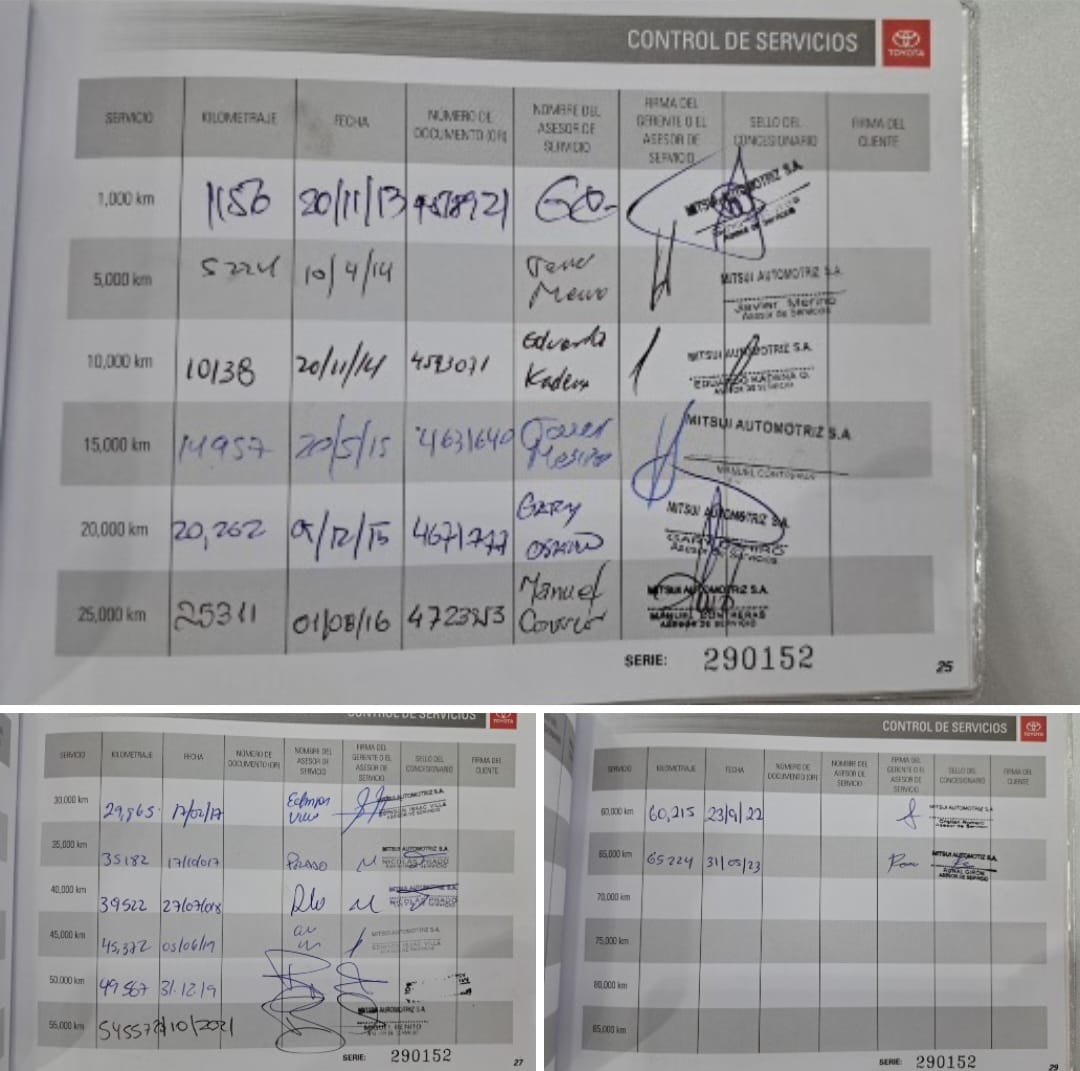 CONTROL DE SERVICIOS
TOYOTA
SERVICIO KILOMETRAJE FECHA NÚMERO DE DOCUMENTO (OR) NOMBRE DEL ASESOR DE SERVICIO FIRMA DEL GERENTE O EL ASESOR DE SERVICIO SELLO DEL CONCESIONARIO FIRMA DEL CLIENTE
1,000 km 1156 20/11/13 MITSUI AUTOMOTRIZ S.A.
Asesor de Servicios
5,000 km 5224 10/4/14 MITSUI AUTOMOTRIZ S.A.
Javier Merino
Asesor de Servicios
10,000 km 10138 20/11/14 4593071 Eduardo Kadena MITSUI AUTOMOTRIZ S.A.
EDUARDO KADENA O.
ASESOR DE SERVICIO
15,000 km 14957 20/5/15 4631640 MITSUI AUTOMOTRIZ S.A.
MANUEL CONTRERAS
20,000 km 20,262 /12/15 4671777 GARY MITSUI AUTOMOTRIZ S.A.
Asesor de Servicios
25,000 km 25311 01/08/16 Manuel MITSUI AUTOMOTRIZ S.A.
MANUEL CONTRERAS
ASESOR DE SERVICIO
SERIE: 290152
25
CONTROL DE SERVICIOS
TOYOTA
SERVICIO KILOMETRAJE FECHA NÚMERO DE DOCUMENTO (OR) NOMBRE DEL ASESOR DE SERVICIO FIRMA DEL GERENTE O EL ASESOR DE SERVICIO SELLO DEL CONCESIONARIO FIRMA DEL CLIENTE
30,000 km 29,865 17/02/17 MITSUI AUTOMOTRIZ S.A.
ISAAC VILLA
ASESOR DE SERVICIO
35,000 km 35182 17/10/017 PRADO MITSUI AUTOMOTRIZ S.A.
NICOLAS PRADO
40,000 km 39522 27/07/018 MITSUI AUTOMOTRIZ S.A.
NICOLAS PRADO
45,000 km 45,372 MITSUI AUTOMOTRIZ S.A.
ISAAC VILLA
50,000 km 49567 31.12/9
55,000 km 54557 /10/2021 MITSUI AUTOMOTRIZ S.A.
BENITO
SERIE: 290152
27
CONTROL DE SERVICIOS
TOYOTA
SERVICIO KILOMETRAJE FECHA NÚMERO DE DOCUMENTO (OR) NOMBRE DEL ASESOR DE SERVICIO FIRMA DEL GERENTE O EL ASESOR DE SERVICIO SELLO DEL CONCESIONARIO FIRMA DEL CLIENTE
60,000 km 60,215 23/9/22 MITSUI AUTOMOTRIZ S.A.
Cristian Romero
Asesor de Servicio
65,000 km 65224 31/05/23 MITSUI AUTOMOTRIZ S.A.
GIRON
ASESOR DE SERVICIO
70,000 km
75,000 km
80,000 km
85,000 km
SERIE: 290152
29